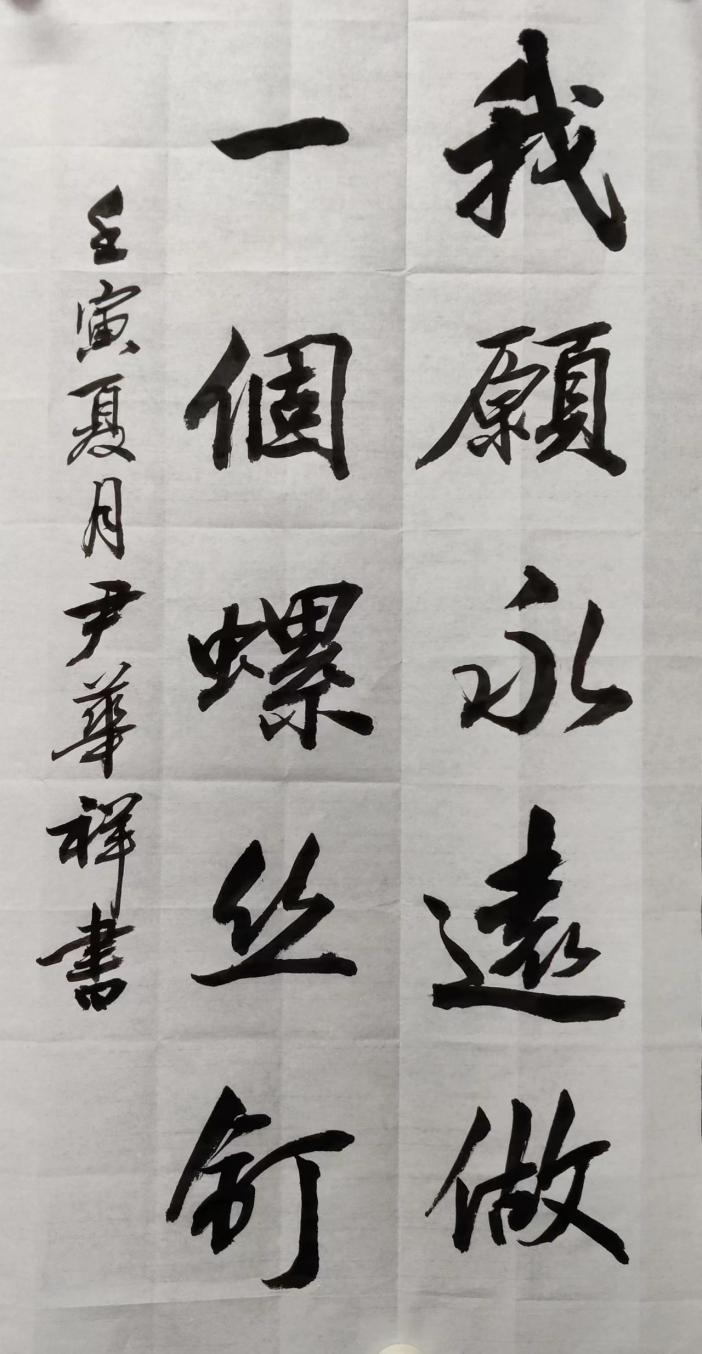 我願永遠做
一個螺丝釘
壬寅夏月尹華祥書